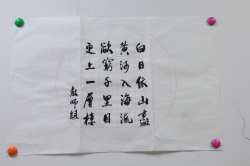 白日依山盡
黄河入海流
欲窮千里目
更上一層樓
教师组